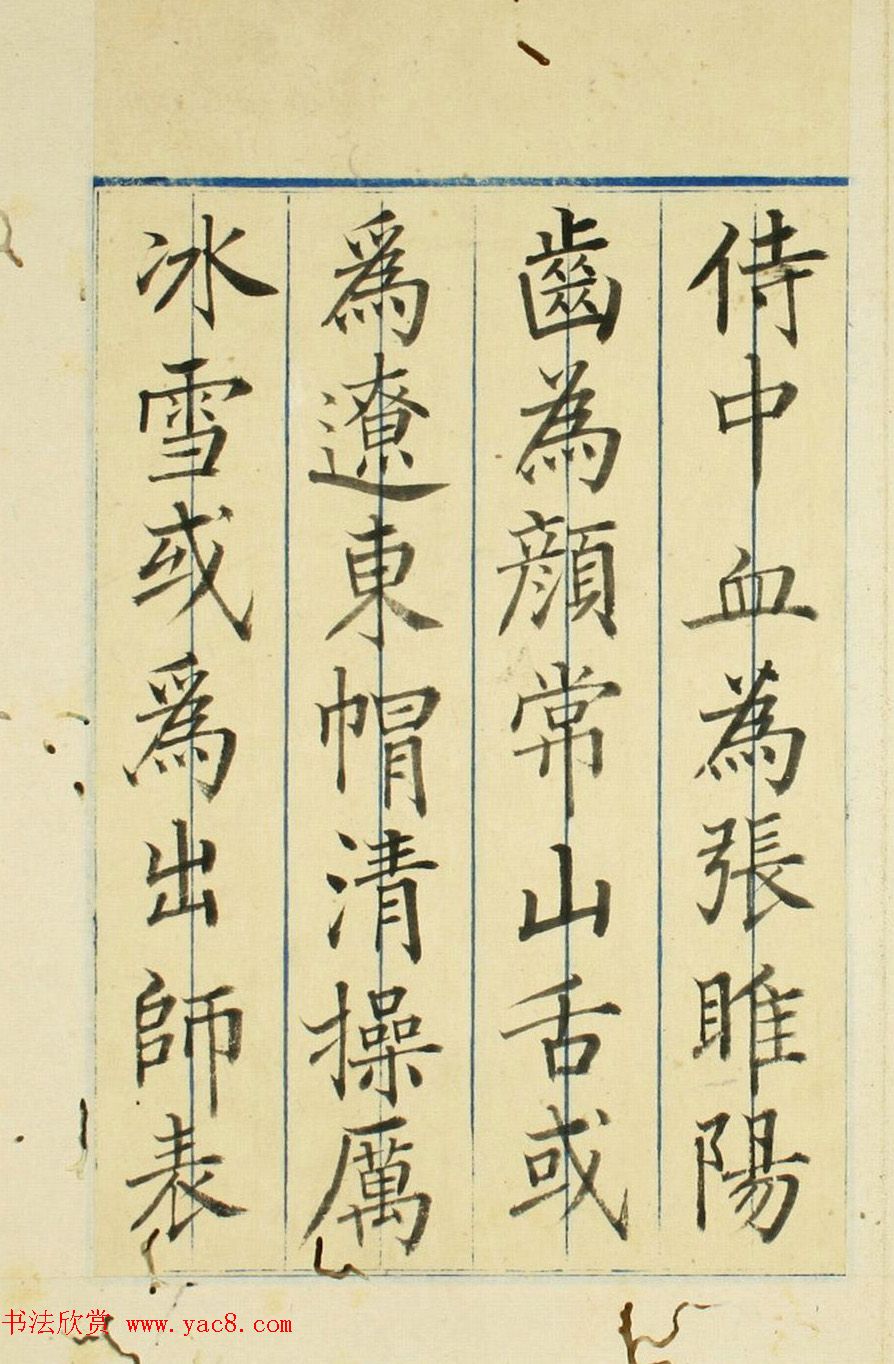 侍中血為張睢陽
齒為顏常山舌或
爲遼東帽清操厲
冰雪或爲出師表
书法欣赏 www.yac8.com